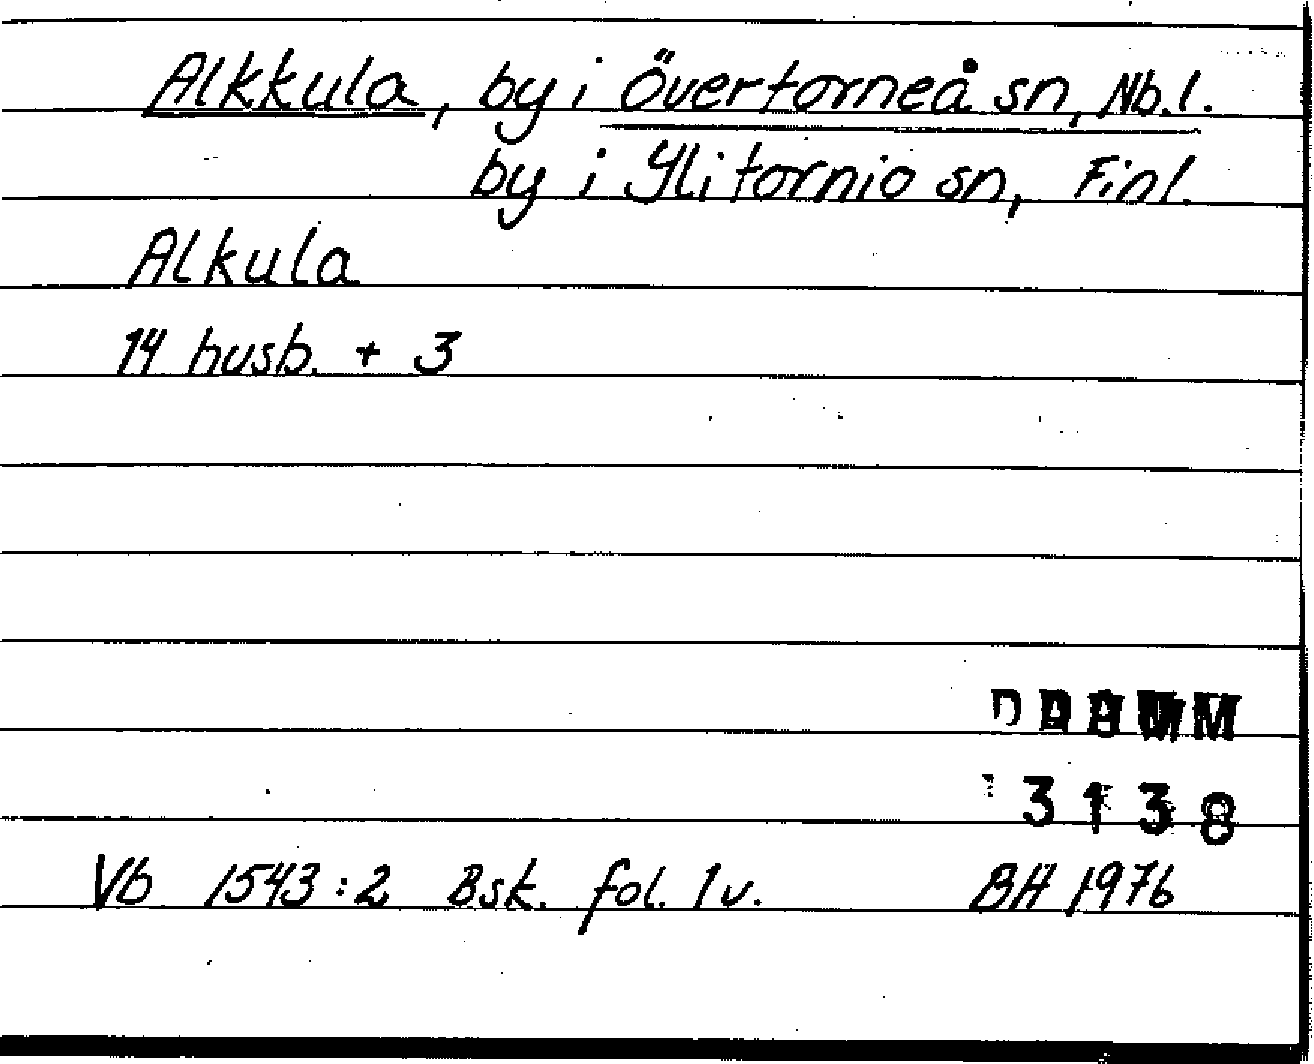 Alkkula, by i Övertorneå sn, Nb.l.
by i Ylitornio sn, Finl.
Alkula
14 husb. + 3
3138
Vb 1543:2 Bsk. fol. 1v. BH 1976